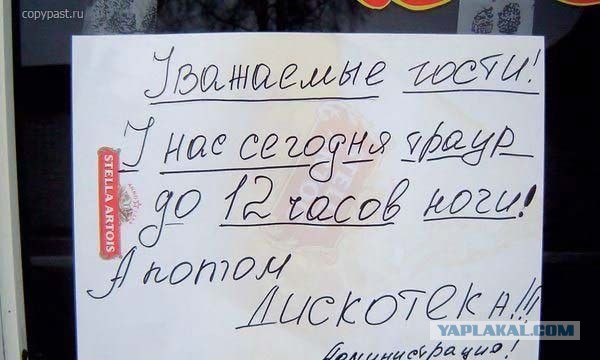 copypast.ru
Уважаемые гости!
У нас сегодня траур
до 12 часов ночи!
А потом
Дискотека!!!
Администрация!
STELLA ARTOIS
YAPLAKAL.COM